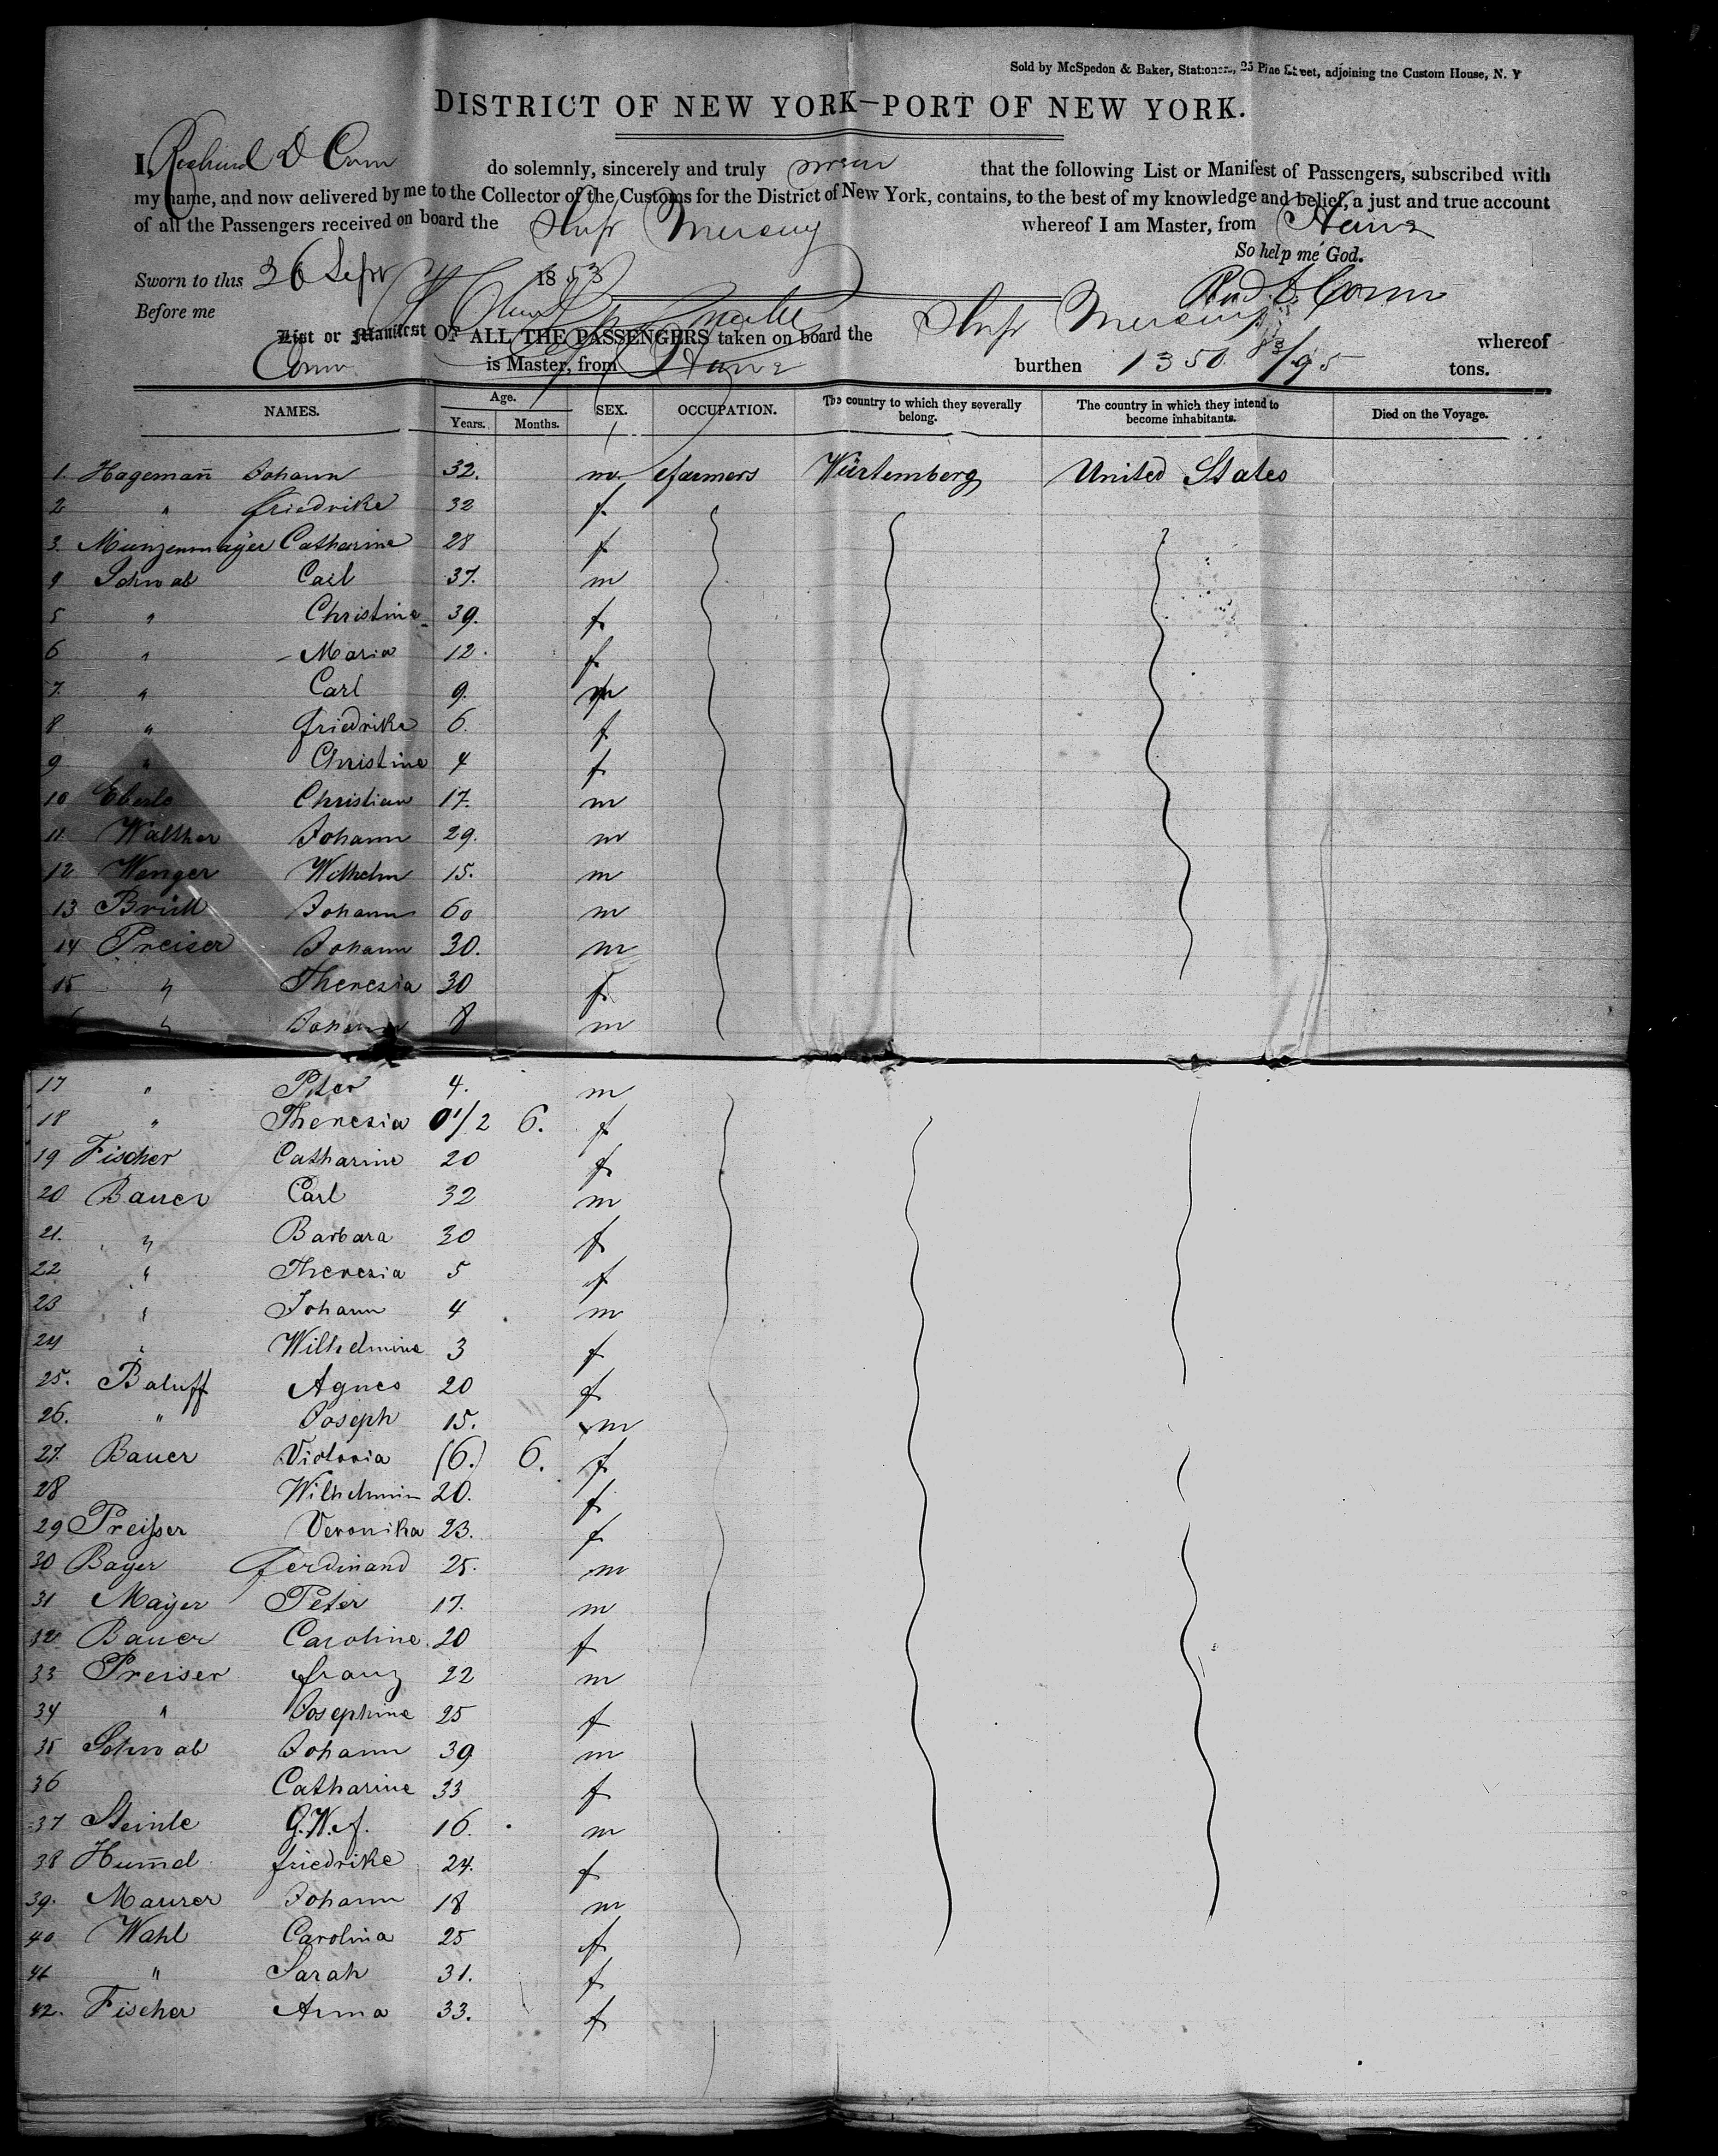 Sold by McSpedon & Baker, Stationers, 25 Pine Street, adjoining the Custom House, N. Y
DISTRICT OF NEW YORK—PORT OF NEW YORK.
I, D Conn do solemnly, sincerely and truly swear that the following List or Manifest of Passengers, subscribed with
my name, and now delivered by me to the Collector of the Customs for the District of New York, contains, to the best of my knowledge and belief, a just and true account
of all the Passengers received on board the Ship Mercury whereof I am Master, from Havre
So help me God.
Sworn to this 26 Sept 1853
Before me
Rd. D. Conn
List or Manifest OF ALL THE PASSENGERS taken on board the Ship Mercury whereof
Conn is Master, from Havre burthen 1350 /95 tons.
NAMES. Age. Years. Months. SEX. OCCUPATION. The country to which they severally belong. The country in which they intend to become inhabitants. Died on the Voyage.
1. Hagemañ Johann 32. m. farmers Würtemberg United States
2 " friedrike 32 f.
3. Munzenmayer Catharine 28 f
4 Schwab Carl 37. m
5 " Christine 39. f.
6 " Maria 12. f.
7. " Carl 9. m
8 " friedrike 6. f
9 " Christine 4 f
10 Eberle Christian 17. m
11. Walther Johann 29. m
12 Wenger Wilhelm 15. m
13 Brüll Johann 60 m
14 Preiser Johann 30. m
15 " Theresia 30 f
" Johann 8 m
17 " Peter 4. m
18 " Theresia 0 1/2 6. f
19 Fischer Catharine 20 f
20 Bauer Carl 32 m
21. " Barbara 30 f
22 " Theresia 5 f
23 " Johann 4 m
24 " Wilhelmine 3 f
25. Baluff Agnes 20 f
26. " Joseph 15. m
27. Bauer Victoria (6.) 6. f
28 Wilhelmin 20. f
29 Preißer Veronika 23. f
30 Bayer ferdinand 25. m
31 Mayer Peter 17. m
32 Bauer Caroline. 20 f
33 Preiser franz 22 m
34 " Josephine 25 f
35 Schwab Johann 39 m
36 Catharine 33 f
37 Steinle G.W.f. 16. m
38 Hum̄el friedrike 24. f
39. Maurer Johann 18 m
40 Wahl Carolina 25 f
41 " Sarah 31. f
42. Fischer Anna 33. f